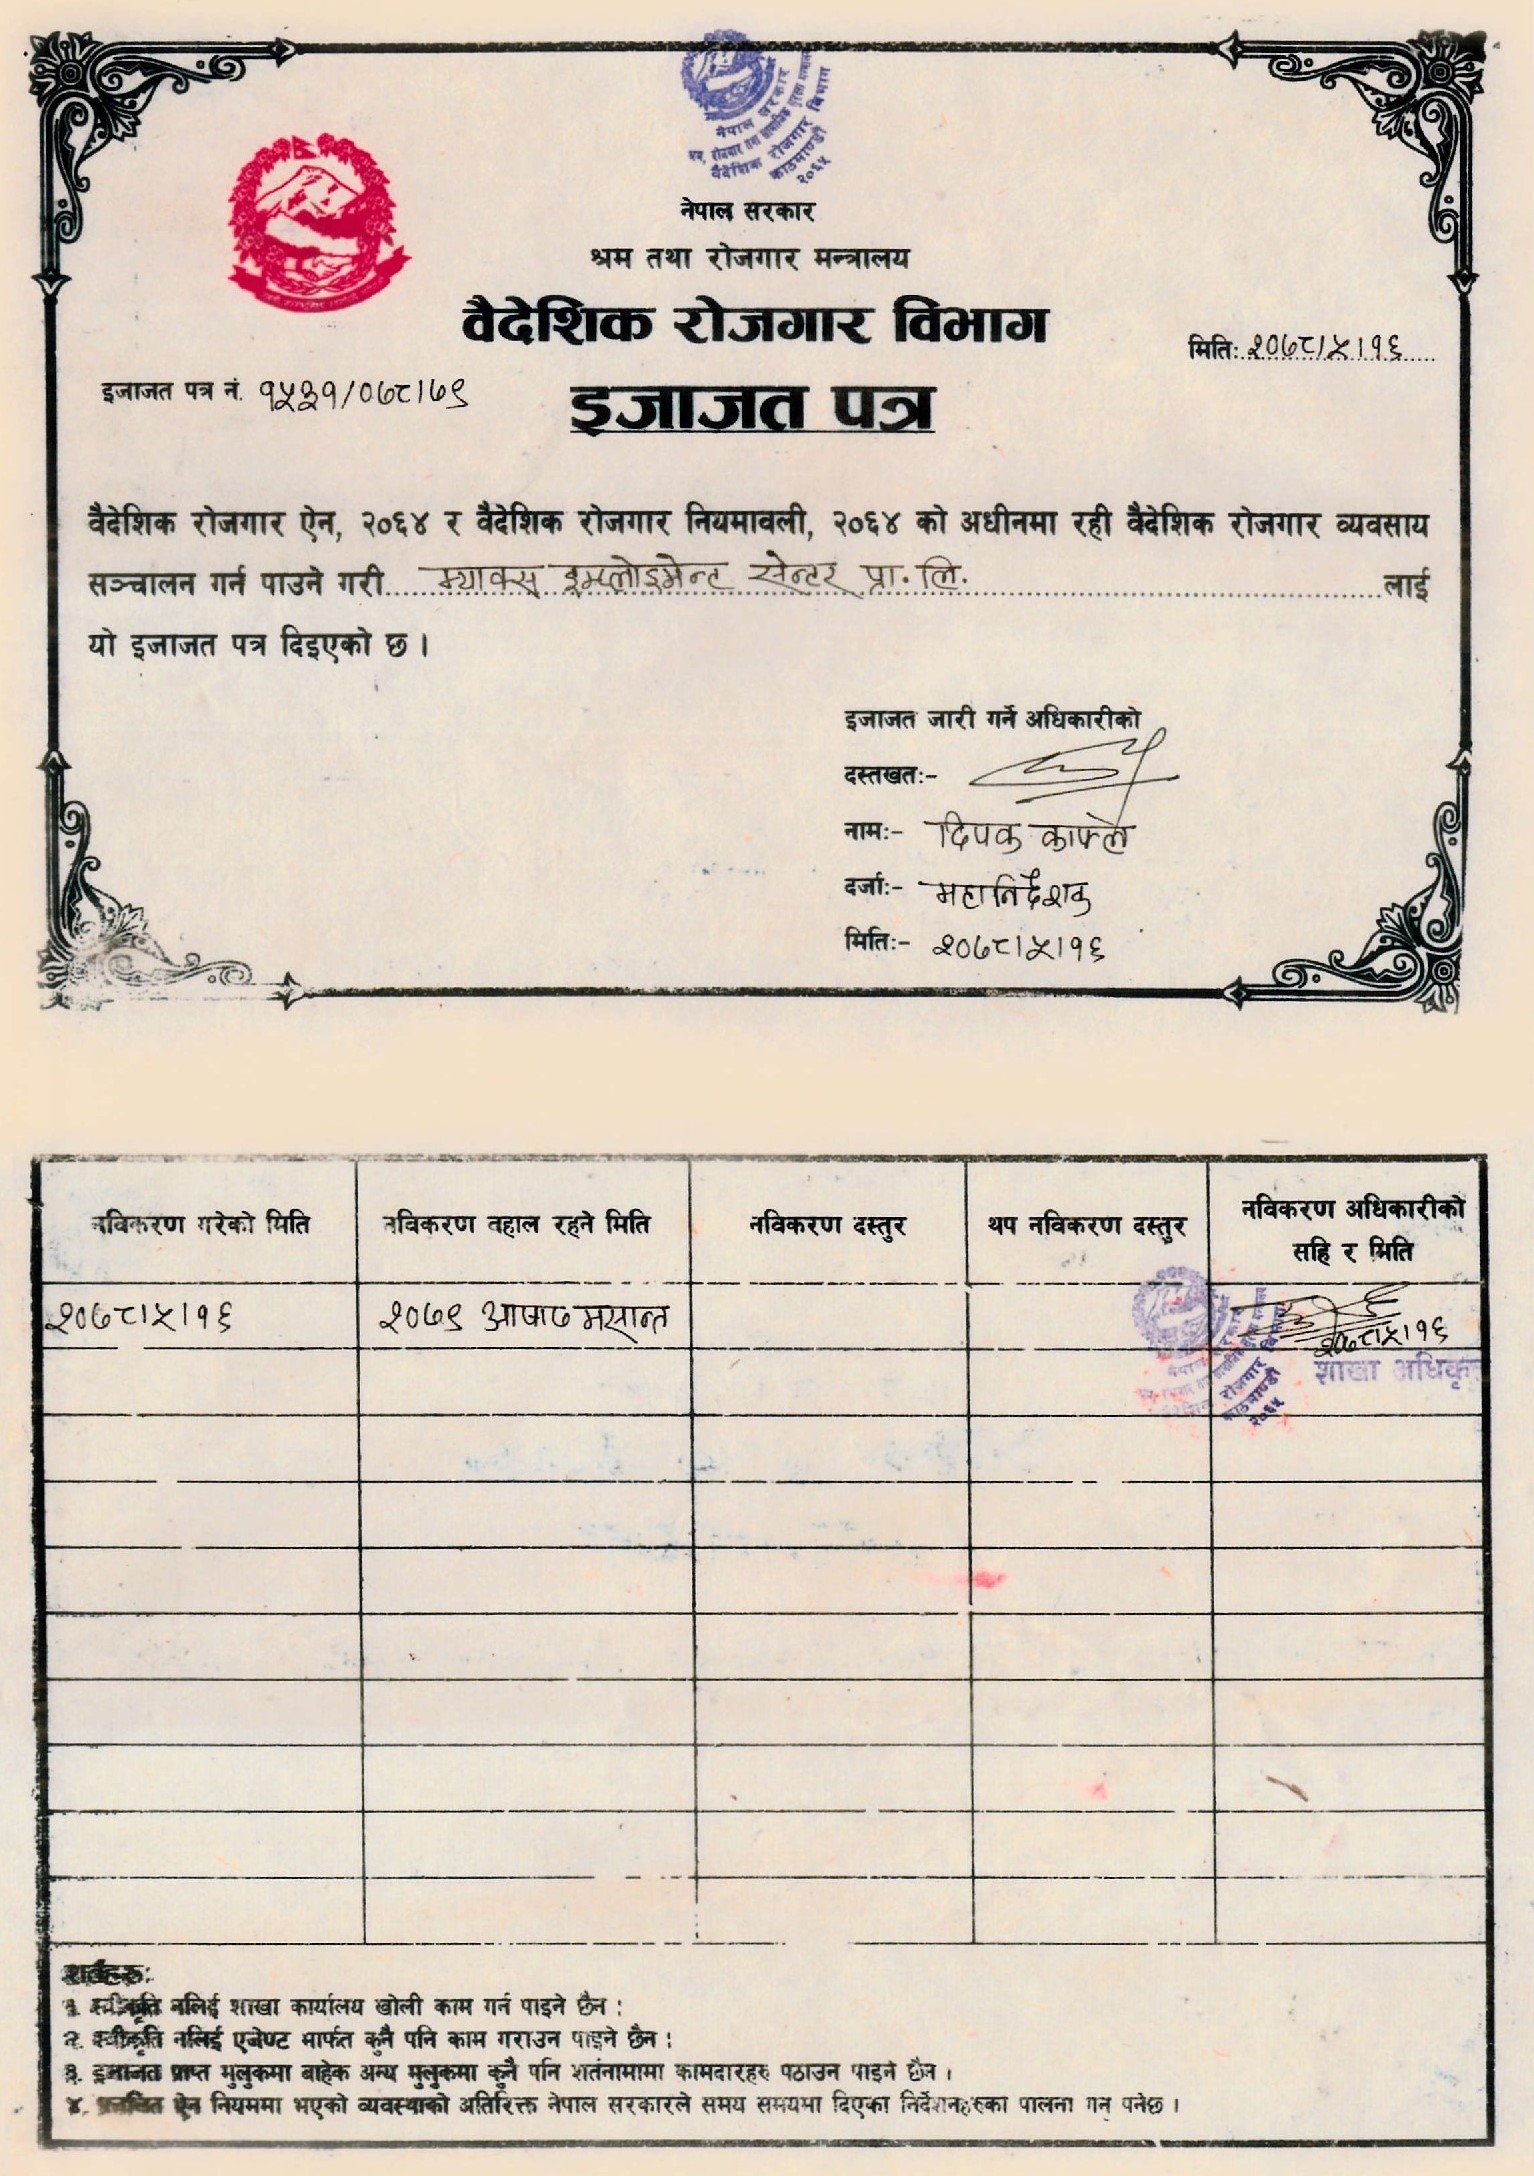 नेपाल सरकार
वैदेशिक रोजगार विभाग
काठमाण्डौ
२०६५
नेपाल सरकार
श्रम तथा रोजगार मन्त्रालय
वैदेशिक रोजगार विभाग
मितिः २०७८।५।१६
इजाजत पत्र नं. १५३१/०७८।७९
इजाजत पत्र
वैदेशिक रोजगार ऐन, २०६४ र वैदेशिक रोजगार नियमावली, २०६४ को अधीनमा रही वैदेशिक रोजगार व्यवसाय
सञ्चालन गर्न पाउने गरी म्याक्स इम्प्लोइमेन्ट सेन्टर प्रा. लि. लाई
यो इजाजत पत्र दिइएको छ ।
इजाजत जारी गर्ने अधिकारीको
दस्तखतः-
नामः- दिपक काफ्ले
दर्जाः- महानिर्देशक
मितिः- २०७८।५।१६
नविकरण गरेको मिति नविकरण वहाल रहने मिति नविकरण दस्तुर थप नविकरण दस्तुर नविकरण अधिकारीको सहि र मिति
२०७८।५।१६ २०७९ आषाढ मसान्त २०७८।५।१६
शाखा अधिकृत
रोजगार विभाग
काठमाण्डौ
२०६५
शर्तहरुः
१. स्वीकृति नलिई शाखा कार्यालय खोली काम गर्न पाइने छैन ।
२. स्वीकृति नलिई एजेण्ट मार्फत कुनै पनि काम गराउन पाइने छैन ।
३. इजाजत प्राप्त मुलुकमा बाहेक अन्य मुलुकमा कुनै पनि शर्तनामामा कामदारहरु पठाउन पाइने छैन ।
४. प्रचलित ऐन नियममा भएको व्यवस्थाको अतिरिक्त नेपाल सरकारले समय समयमा दिएका निर्देशनहरुका पालना गर्नु पर्नेछ ।